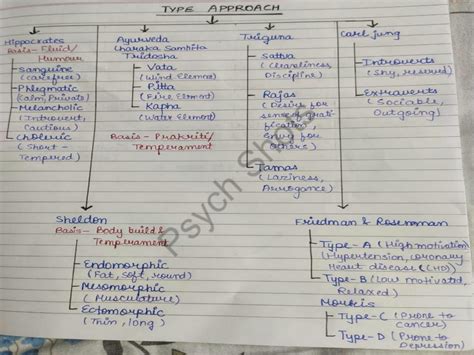 TYPE APPROACH
Hippocrates
Basis- Fluid/
Humour
Sanguine
(carefree)
Phlegmatic
(Calm, Private)
Melancholic
(Introvert,
Cautious)
Choleric
(Short-
Tempered)
Ayurveda
Charaka Samhita
Tridosha
Vata
(Wind Element)
Pitta
(Fire Element)
Kapha
(Water Element)
Basis- Prakriti/
Temperament
Triguna
Sattva
(Cleanliness,
Discipline)
Rajas
(Desire for
sense grati-
fication,
envy for
Others)
Tamas
(Laziness,
Arrogance)
Carl Jung
Introverts
(Shy, reserved)
Extraverts
(Sociable,
Outgoing)
Sheldon
Basis- Body build &
Temperament
Endomorphic
(Fat, Soft, round)
Mesomorphic
(Musculature)
Ectomorphic
(Thin, long)
Friedman & Rosenman
Type-A (High motivation)
(Hypertension, coronary
Heart disease (CHD))
Type-B (Low motivated,
Relaxed)
Morris
Type-C (Prone to
Cancer)
Type-D (Prone to
Depression)
Psych Shots